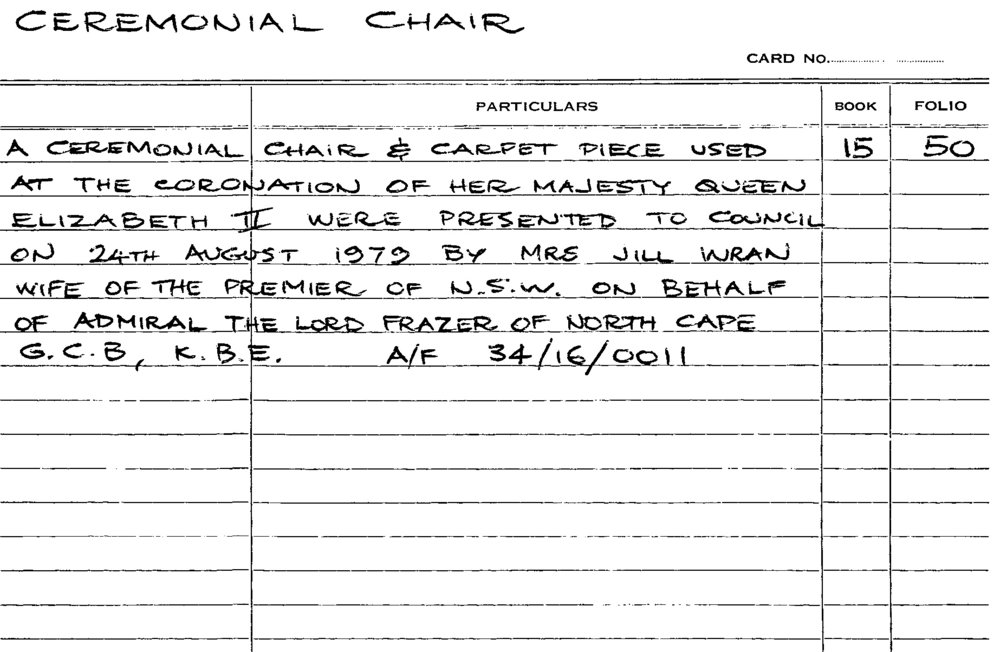 CEREMONIAL CHAIR
CARD No.
PARTICULARS BOOK FOLIO
A CEREMONIAL CHAIR & CARPET PIECE USED 15 50
AT THE CORONATION OF HER MAJESTY QUEEN
ELIZABETH II WERE PRESENTED TO COUNCIL
ON 24TH AUGUST 1979 BY MRS JILL WRAN
WIFE OF THE PREMIER OF N.S.W. ON BEHALF
OF ADMIRAL THE LORD FRAZER OF NORTH CAPE
G.C.B, K.B.E. A/F 34/16/0011